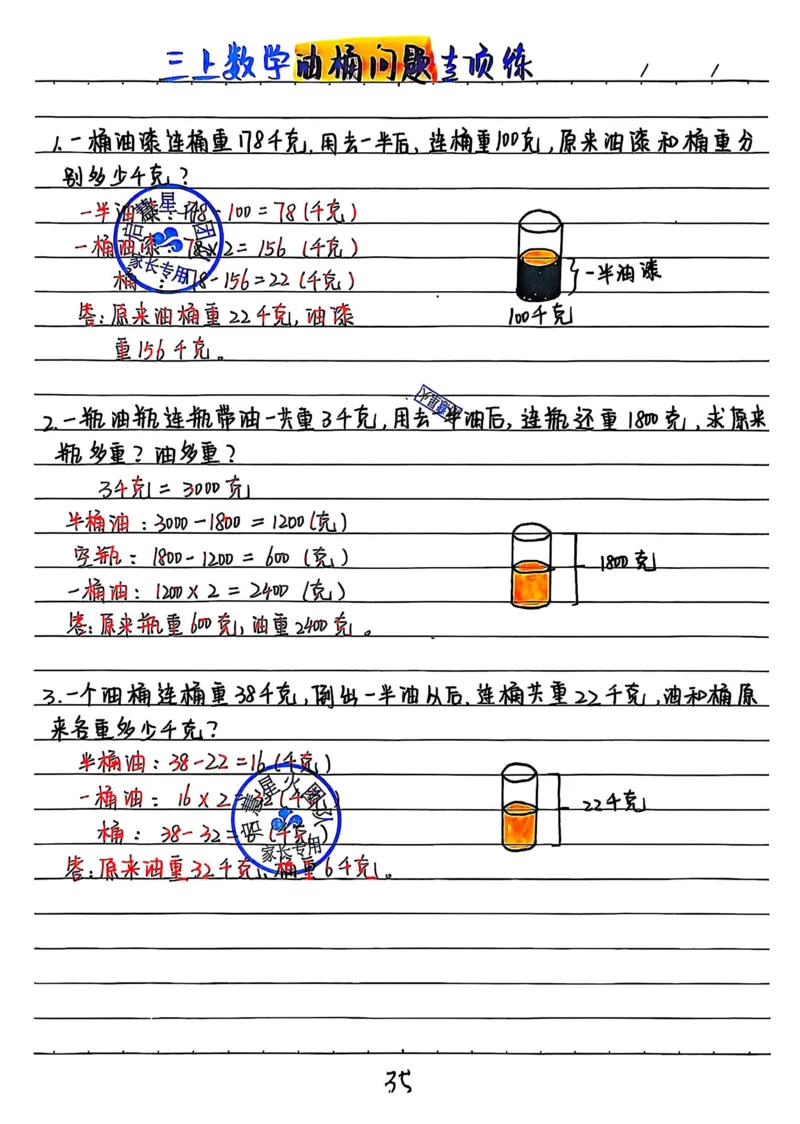 三上数学油桶问题专项练 / /
1.一桶油漆连桶重178千克,用去一半后,连桶重100克,原来油漆和桶重分
别多少千克?
一半油漆:178-100=78(千克)
一桶油漆:78×2=156(千克)
桶:178-156=22(千克)
一半油漆
100千克
答:原来油桶重22千克,油漆
重156千克。
2.一瓶油瓶连瓶带油一共重3千克,用去一半油后,连瓶还重1800克,求原来
瓶多重?油多重?
3千克=3000克
半桶油:3000-1800=1200(克)
空瓶:1800-1200=600(克)
一桶油:1200×2=2400(克)
1800克
答:原来瓶重600克,油重2400克。
3.一个油桶连桶重38千克,倒出一半油以后,连桶共重22千克,油和桶原
来各重多少千克?
半桶油:38-22=16(千克)
一桶油:16×2=32(千克)
桶:38-32=(千克)
22千克
答:原来油重32千克,桶重6千克。
家长专用
家长专用
35